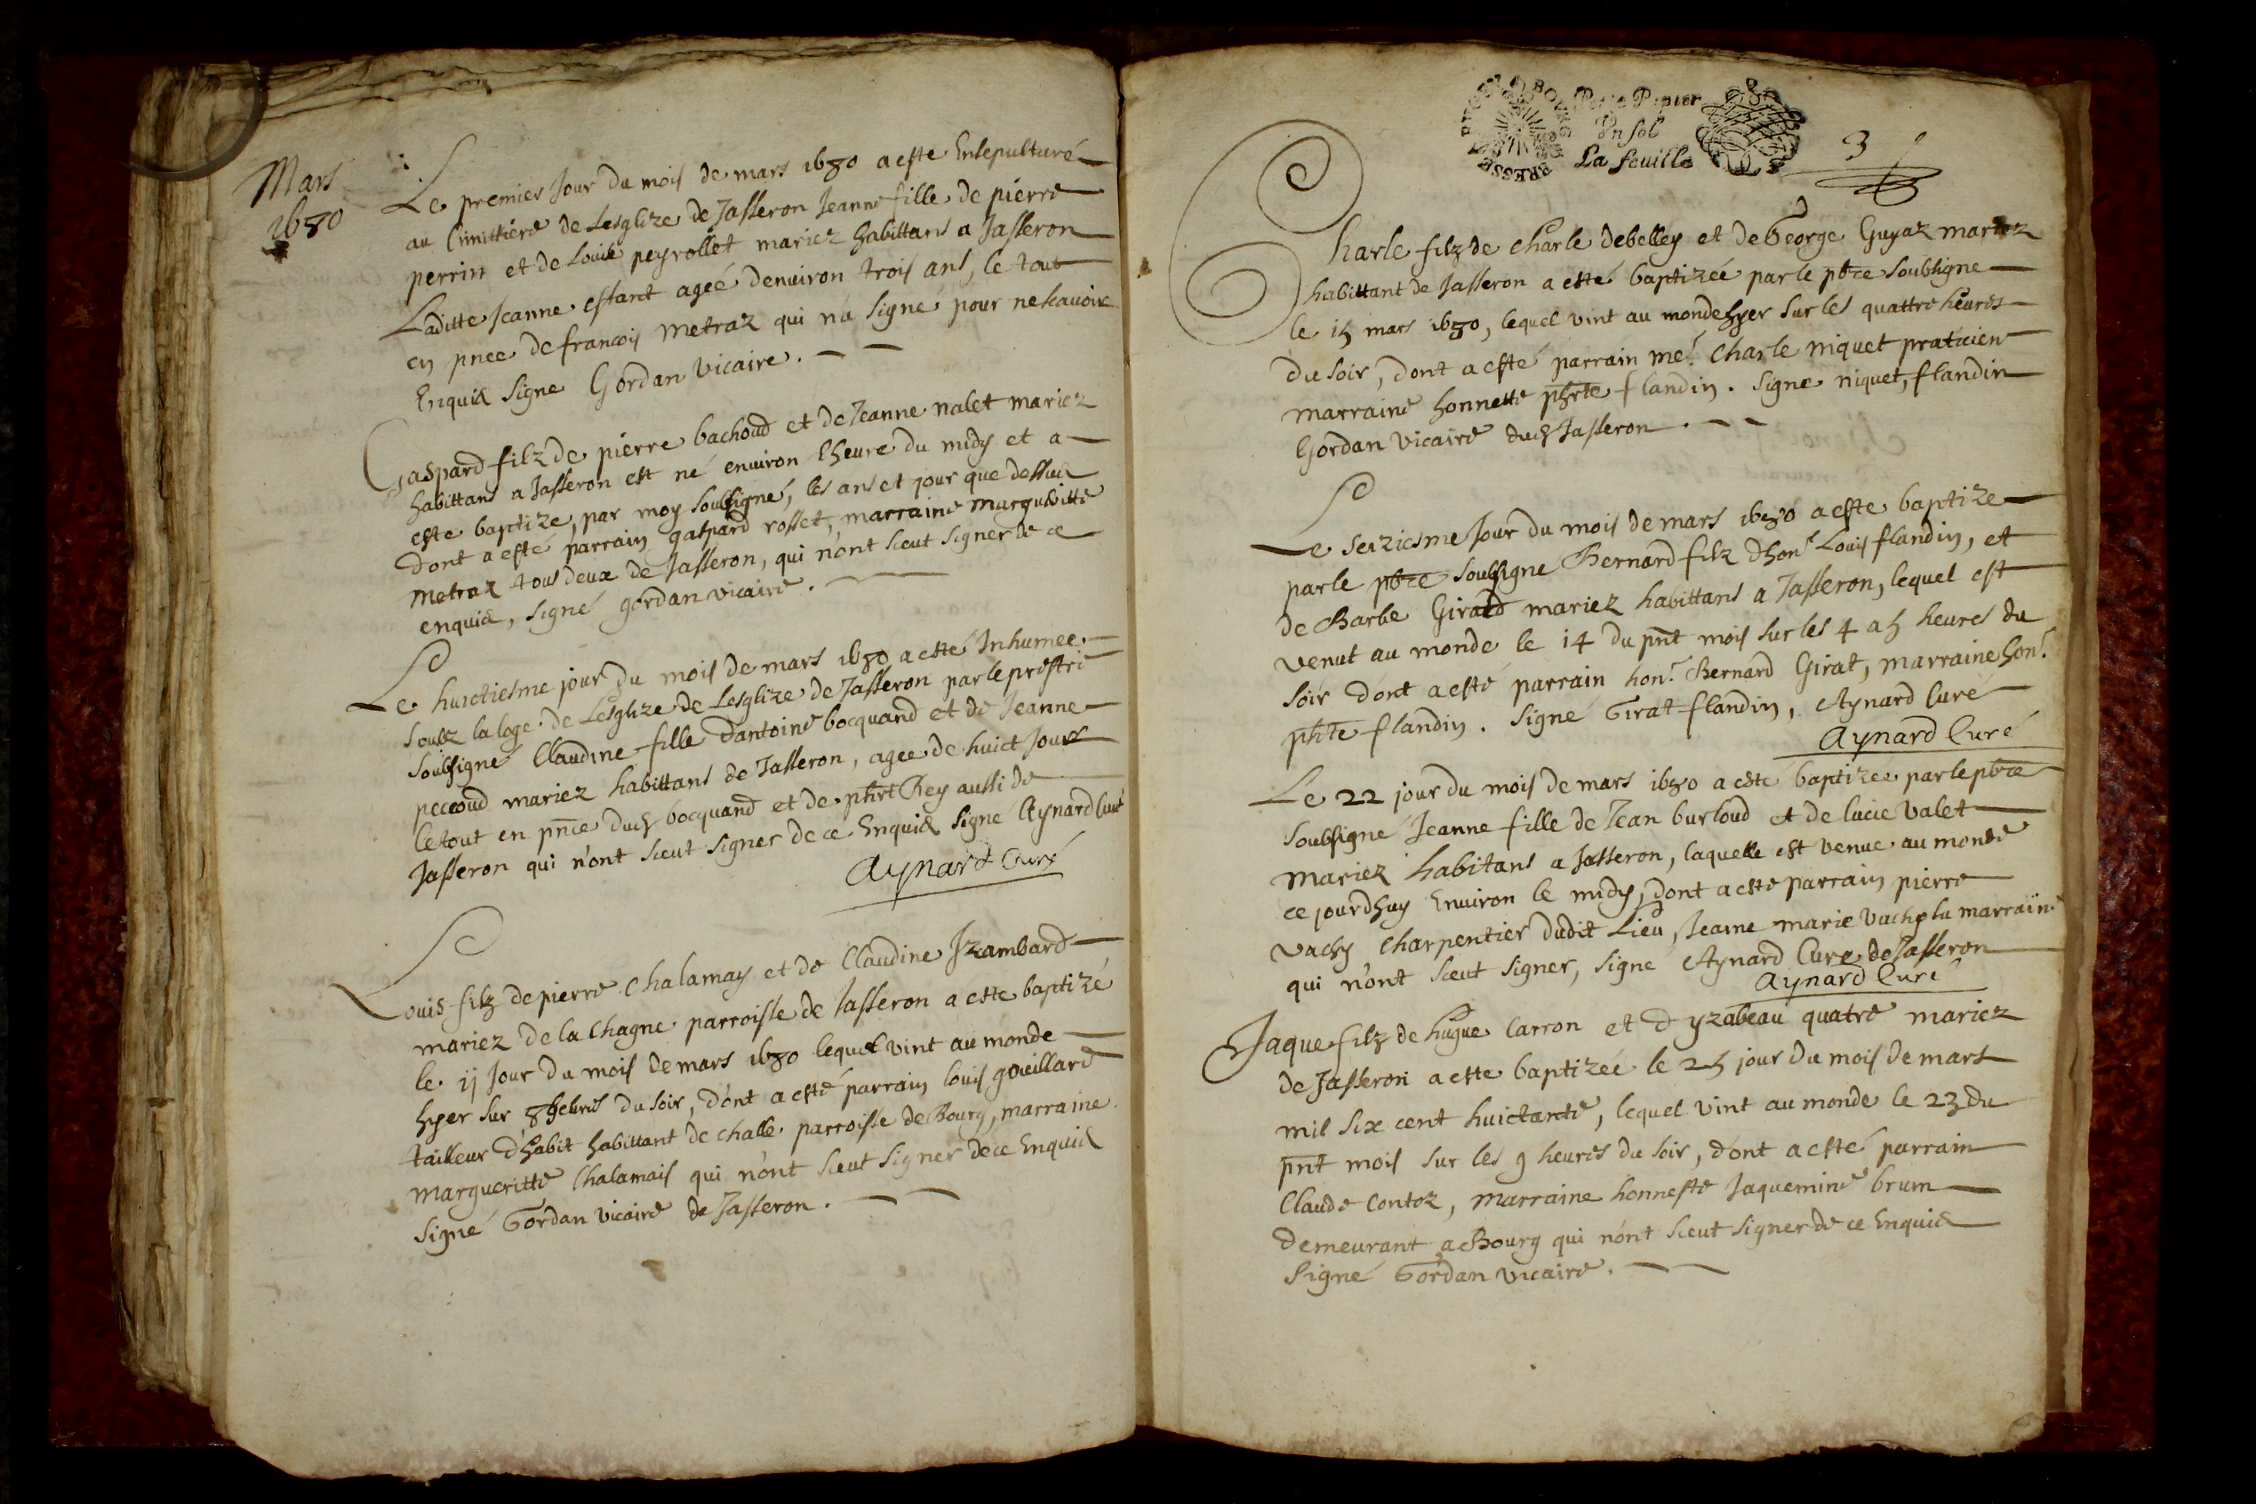 Mars
1680
Le premier Jour du mois de mars 1680 a este Ensepulturé
au Cimittiere de Lesglize de Jasseron Jeanne fille de pierre
perrin et de Louise peyrollet mariez habittans a Jasseron
Laditte Jeanne estant ageé denuiron trois ans, le tout
en pnce de francois metraz qui n'a signé pour ne scauoire
Enquis signe Gordan vicaire.
Gaspard filz de pierre bachoud et de Jeanne nalet mariez
habittans a Jasseron est né enuiron lheure du midy et a
este baptize, par moy soubsigné, les an et jour que dessus
dont a esté parrain gaspard rosset, marraine margueritte
metraz tous deux de Jasseron, qui n'ont sceut signer de ce
enquis, signé gordan vicaire.
Le huictiesme jour du mois de mars 1680 a esté Inhumeé
soubz la loge de Lesglize de Lesglize de Jasseron par le prestre
soubsigné Claudine fille dantoine bocquand et de Jeanne
peccoud mariez habittans de Jasseron, agee de huict Jours
le tout en pnce dud bocquand et de phrt Rey aussi de
Jasseron qui n'ont sceut signer de ce Enquis signe Aynard Curé
Aynard Curé
Louis filz de pierre Chalamay et de Claudine Jzambard
mariez de la Chagne parroisse de Jasseron a este baptizé
le 11 Jour du mois de mars 1680 lequel vint au monde
hyer sur 8 heures du soir, dont a esté parrain louis gouillard
tailleur d'habit habittant de challe parroisse de Bourg, marraine
margueritte Chalamais qui n'ont sceut signer de ce Enquis
signé Gordan vicaire de Jasseron.
BOURG BRESSE
Petit Papier
Vn sol
La feuille
3
Charle filz de Charle debelley et de George Guyaz mariez
habittant de Jasseron a esté baptizeé par le pbre soubsigne
le 15 mars 1680, lequel vint au monde hyer sur les quattre heures
du soir, dont a esté parrain me. Charle niquet praticien
marraine honnette phrte flandin. signe niquet, flandin
Gordan vicaire dud Jasseron.
Le seiziesme Jour du mois de mars 1680 a esté baptize
par le pbre soubsigne Bernard filz dhon. Louis flandin, et
de Barbe Girard mariez habittans a Jasseron, lequel est
venut au monde le 14 du pnt mois sur les 4 a 5 heures du
soir dont a esté parrain hon. Bernard Girat, marraine hon.
phte flandin. Signé Girat flandin, Aynard Curé
Aynard Curé
Le 22 jour du mois de mars 1680 a este baptizeé par le pbre
soubsigné Jeanne fille de Jean burloud et de lucie valet
Mariez habitans a Jasseron, laquelle est venue au monde
ce jourdhuy Enuiron le midy, dont a esté parrain pierre
vachy Charpentier dudit Lieu, Jeanne marie vachy la marraine
qui n'ont sceut signer, signé Aynard Curé de Jasseron
Aynard Curé
Jaque filz de hugue Carron et d yzabeau quatre mariez
de Jasseron a esté baptizeé le 25 jour du mois de mars
mil six cent huictante, lequel vint au monde le 23 du
pnt mois sur les 9 heures du soir, dont a esté parrain
Claude Contoz, marraine honneste Jaquemine brum
demeurant a Bourg qui n'ont sceut signer de ce Enquis
signé Gordan vicaire.